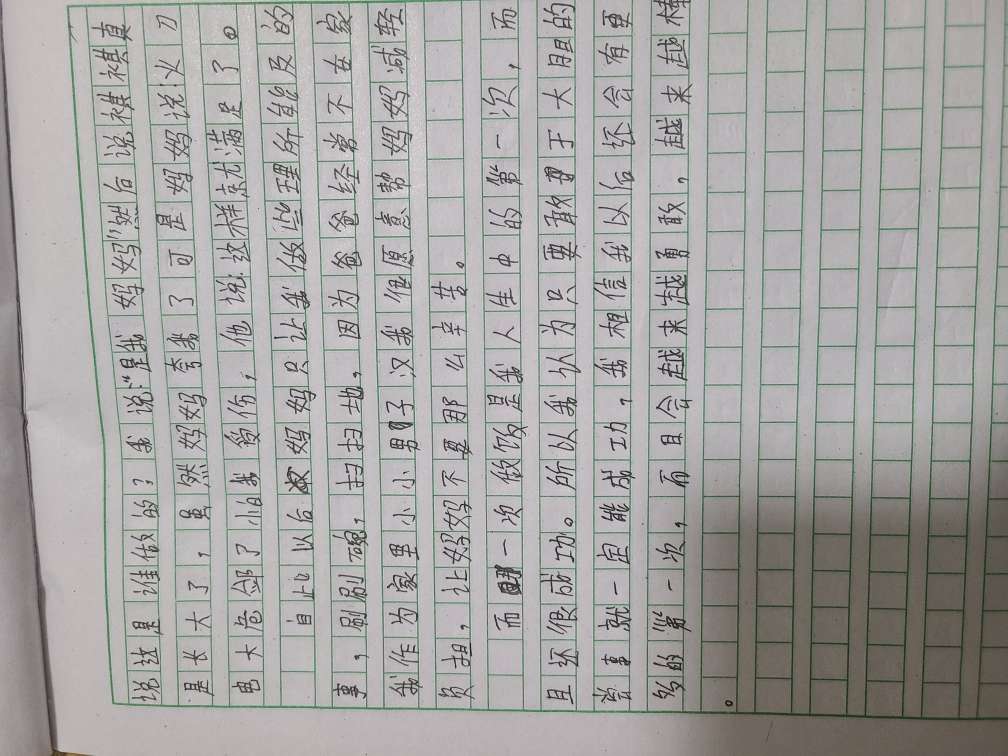 说这是谁做的？我说:“是我妈妈”然后说祺祺真
是长大了，虽然妈妈夸我了可是妈妈说火刀
电太危险了小怕我受伤，他说:这样就满足了。
自此以后妈妈只让我做些理所能及的
事，刷刷碗，扫扫地，因为爸爸经常不在家
我作为家里小小男子汉我很愿意帮妈妈减轻
负担，让妈妈不再那么辛苦。
而一次做饭是我人生中的第一次，而
且还很成功。所以我认为只要敢于大胆的
尝事就一定能成功，我相信我以后还会有更
多的第一次，而且会越来越勇敢，越来越棒
。